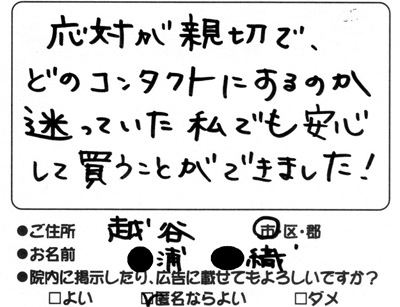 応対が親切で、
どのコンタクトにするのか
迷っていた私でも安心
して買うことができました!
●ご住所 越谷 市・区・郡
●お名前 ●浦 ●織
●院内に掲示したり、広告に載せてもよろしいですか?
□よい ☑匿名ならよい □ダメ